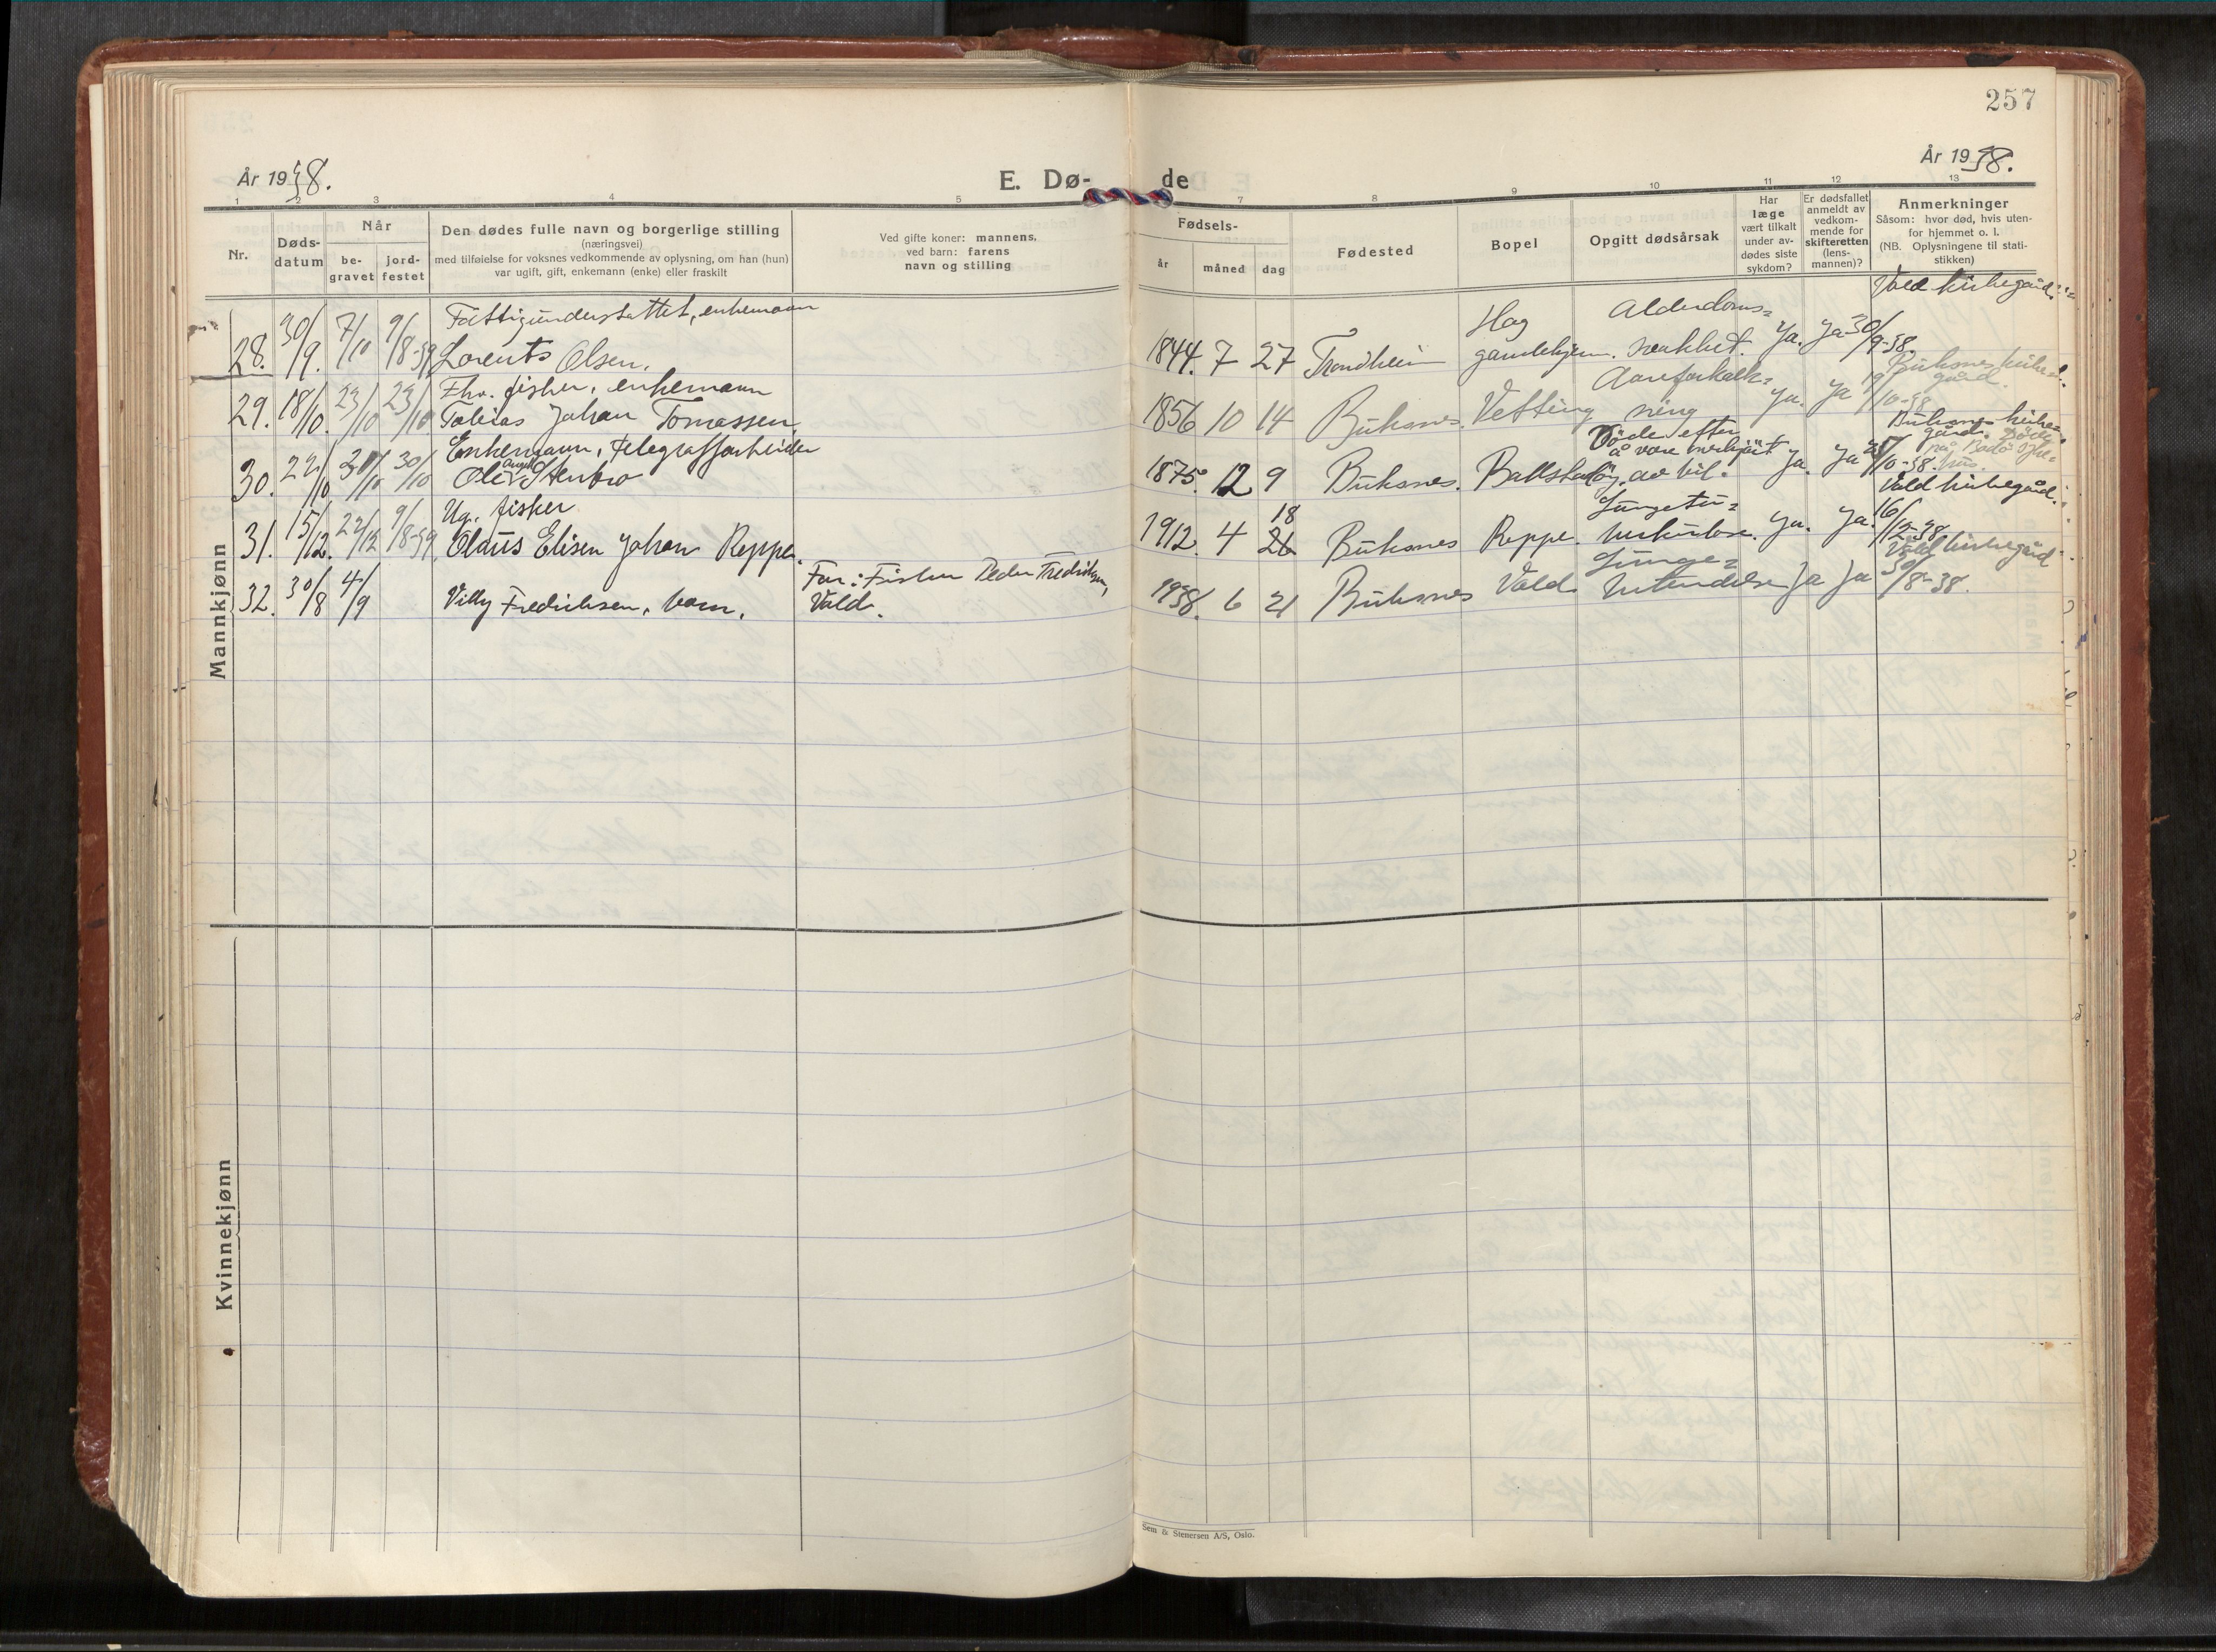 257
År 1938.
E. Dø-
de
År 1938.
1 2 3 4 5 7 8 9 10 11 12 13
Nr.
Døds-
datum
Når
be-
gravet
jord-
festet
Den dødes fulle navn og borgerlige stilling
(næringsvei)
med tilføielse for voksnes vedkommende av oplysning, om han (hun)
var ugift, gift, enkemann (enke) eller fraskilt
Ved gifte koner: mannens,
ved barn: farens
navn og stilling
Fødsels-
år
måned
dag
Fødested
Bopel
Opgitt dødsårsak
Har
læge
vært tilkalt
under av-
dødes siste
sykdom?
Er dødsfallet
anmeldt av
vedkom-
mende for
skifteretten
(lens-
mannen)?
Anmerkninger
Såsom: hvor død, hvis uten-
for hjemmet o. l.
(NB. Oplysningene til stati-
stikken)
Mannkjønn
28. 30/9. 7/10 9/8-39 Fattigunderstøttet, enkemann
Lorents Olsen.
1844. 7 27 Trondheim
Hag
gamlehjem.
Alderdoms=
svakhet. Ja. Ja 30/9-38
Vold kirkegård.
29. 18/10. 23/10 23/10 Fhv. fisker, enkemann
Tobias Johan Tomassen,
1856 10 14 Buksnes. Vetting
Aareforkalk=
ning Ja. Ja 19/10-38
Buksnes kirke=
gård.
30. 22/10 30/10 30/10 Enkemann, telegrafarbeider
Ole August Stenbro
1875. 12 9 Buksnes. Ballstad
Døde efter
å være overkjørt
av bil. Ja. Ja 25/10-38.
Buksnes kirke=
gård. Døde
på Bodø syke=
hus.
31. 15/12. 22/12 9/8-39. Ug. fisker
Olaus Elisen Johan Reppe.
1912. 4 26 18 Buksnes Reppe.
Lungetu=
berkulose. Ja. Ja. 16/12-38
Vold kirkegård.
32. 30/8 4/9 Villy Fredriksen, barn.
Far: Fisker Peder Fredriksen,
Vold.
1938. 6 21 Buksnes Vold
Lunge=
betendelse Ja Ja 30/8-38.
Vold kirkegård
Kvinnekjønn
Sem & Stenersen A/S, Oslo.